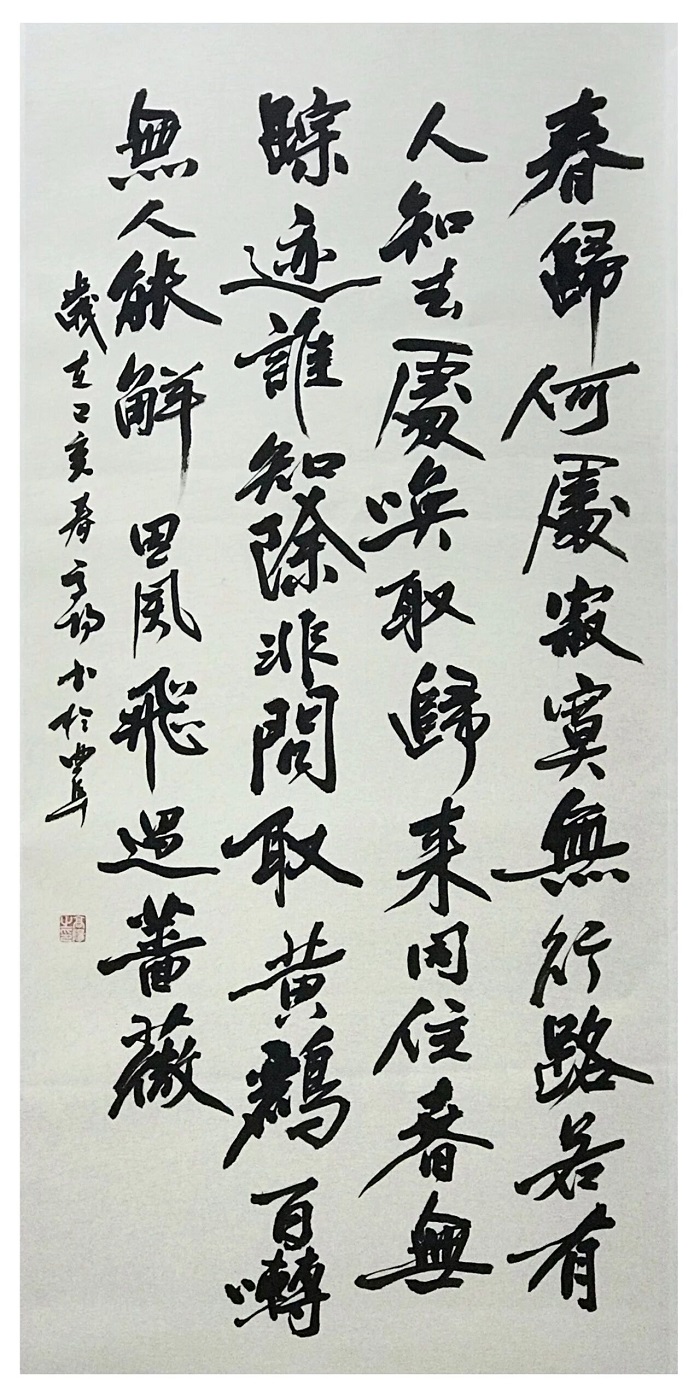 春歸何處寂寞無行路若有
人知去處喚取歸来同住春無
踪迹誰知除非問取黄鸝百囀
無人能解因風飛過薔薇
歲在己亥春高书於曲阜